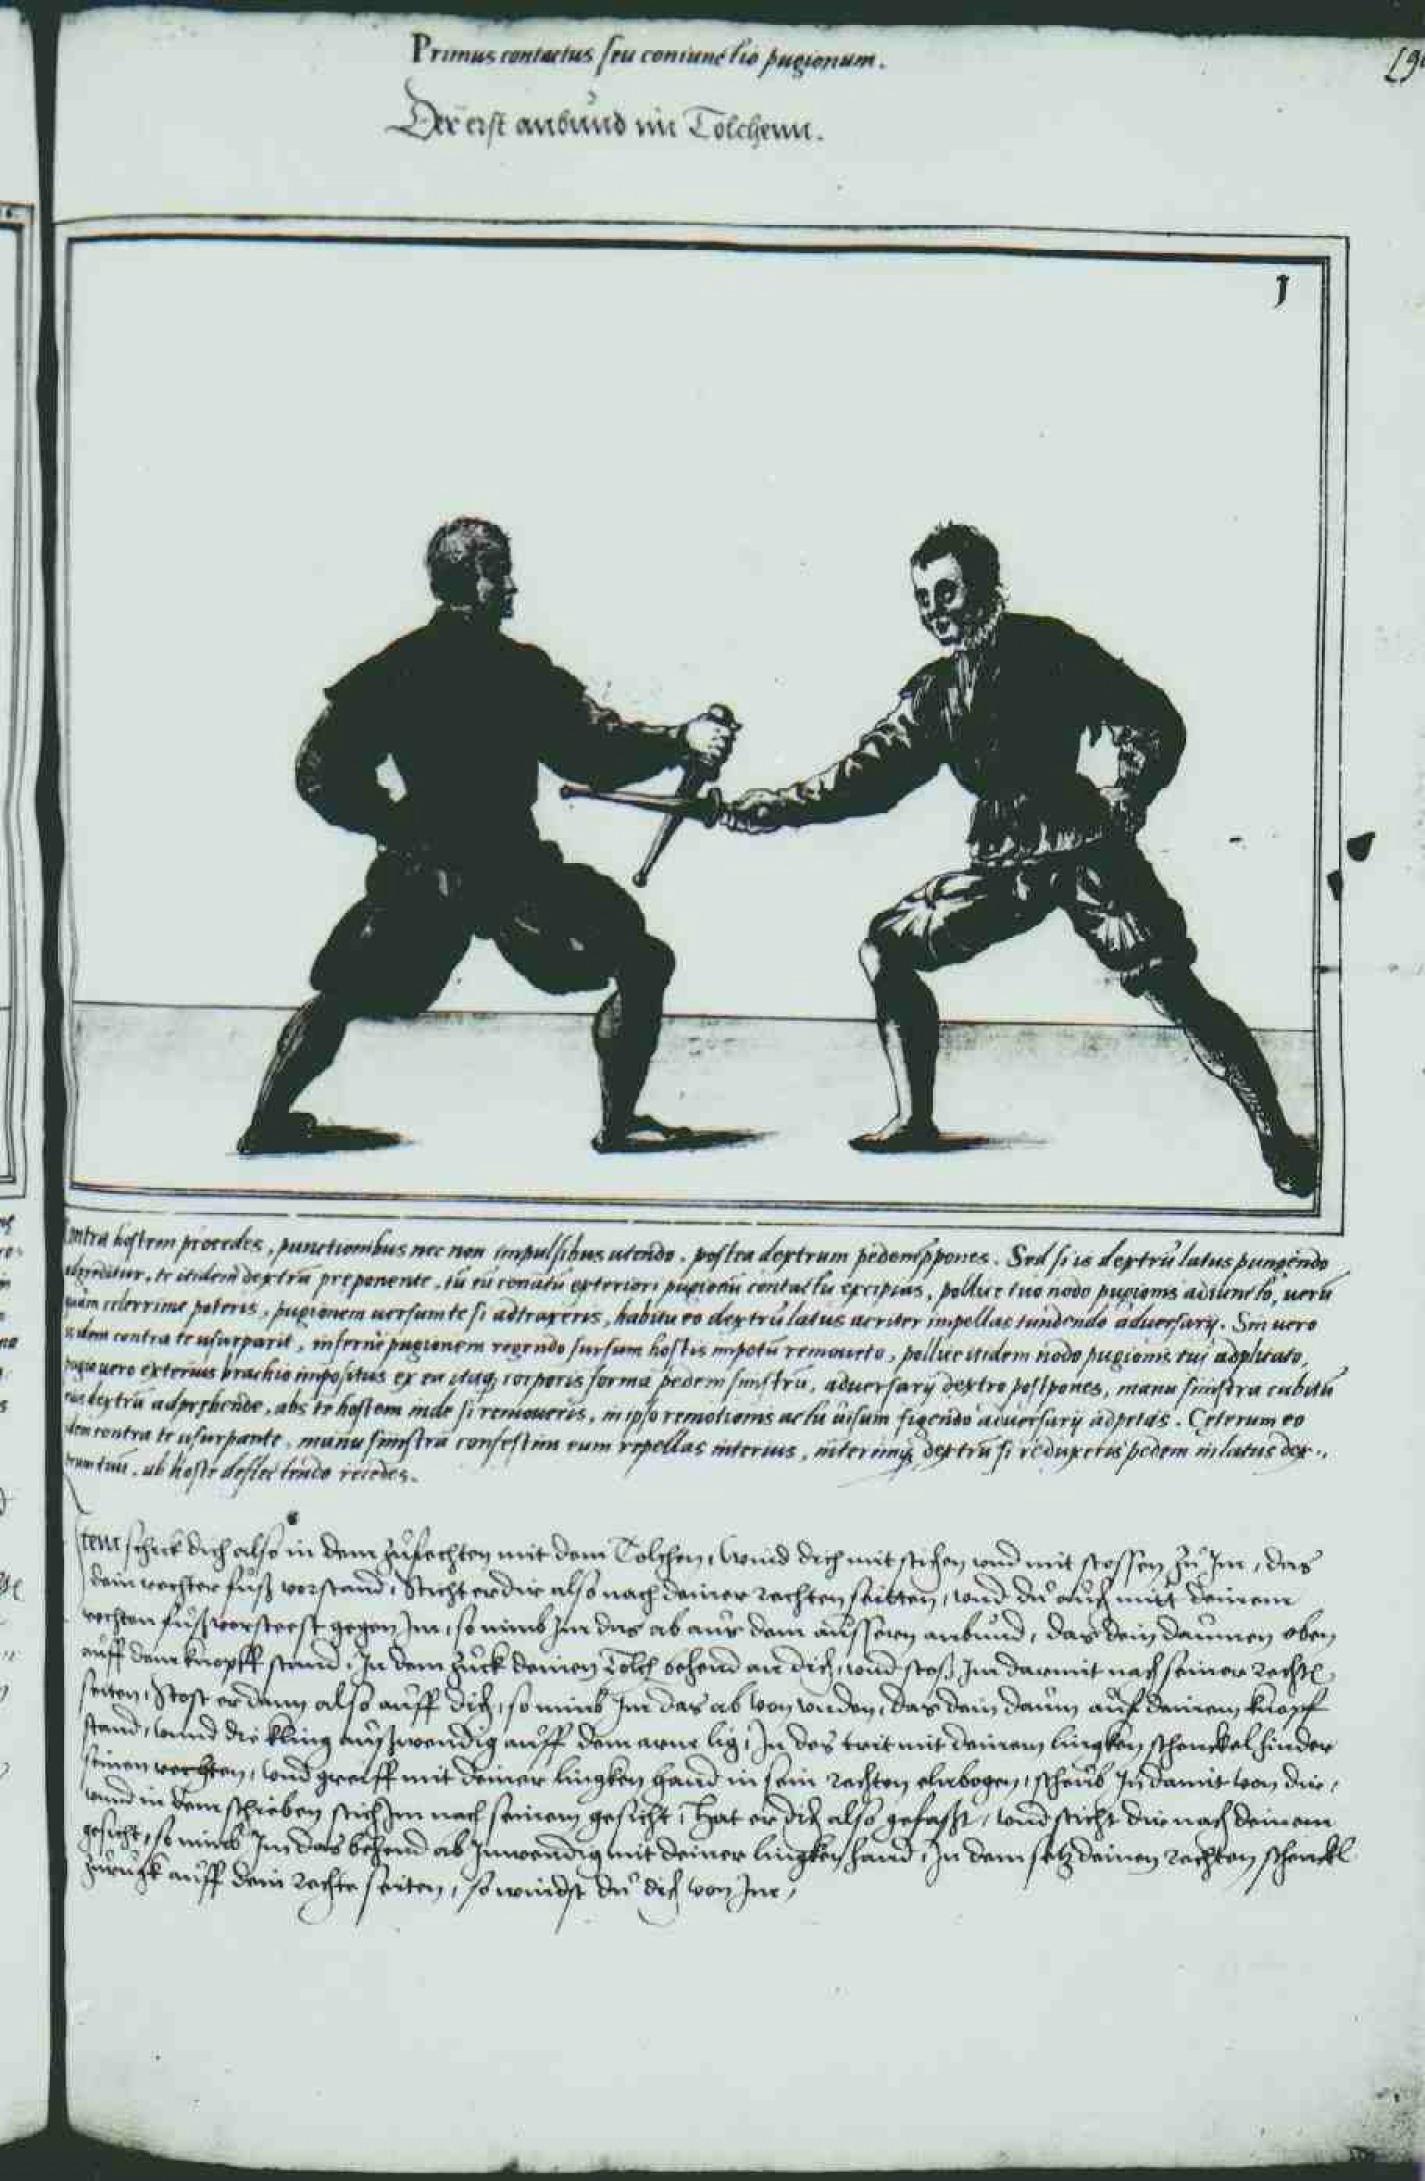 Primus contactus seu coniunctio pugionum.
Der erst anbund im Tolchenn.
[9
1
Contra hostem procedes, punctionibus nec non impulsibus utendo, postea dextrum pedem ppones. Sed si is dextrũ latus pungendo
adgreditur, te itidem dextrũ preponente, tũ eũ conatũ exteriori pugionũ contactu excipias, pollice tuo nodo pugionis adiuncto, uerũ
quàm celerrime poteris, pugionem uersum te si adtraxeris, habitu eo dextrũ latus acriter impellas tundendo aduersarij. Sin uero
idem contra te usurparit, infernè pugionem regendo sursum hostis impetũ remoueto, pollice itidem nodo pugionis tui adplicato,
pugio uero exterius brachio impositus ex ea itaq corporis forma pedem sinistrũ, aduersarij dextro postpones, manu sinistra cubitũ
eius dextrũ adprehende, abs te hostem inde si remoueris, in ipso remotionis actu uisum figendo aduersarij adpetas. Ceterum eo
dem contra te usurpante, manu sinistra confestim eum repellas interius, interimq dextrũ si reduxeris pedem in latus dex-
trum tuũ, ab hoste deflectendo recedes.
Item schick dich also in dem zufechten mit dem Tolchen, wind dich mit stichen und mit stossen zu Im, das
dein rechter fuß vorstand, Sticht er dir also nach deiner rechten seitten, und du auch mitt deinem
rechten fuß vorsteest gegen Im, so nimb Im das ab aus dem aussern anbund, das dein daumen oben
auff dem knopff stand, In dem zuck deinen Tolch behend an dich, und stoß Im darmit nach seiner rechtñ
seiten, Stost er dann also auff dich, so nimb Im das ab von unden, das dein daum auf deinem knopf
stand, unnd die kling außwendig auff dem arm lig, In des trit mit deinem lingken schenckel hinder
seinen rechten, und greiff mit deiner lingken hand in sein rechten elnbogen, scheub In damit von dir,
unnd in dem schieben stich Im nach seinem gesicht, Hat er dich also gefasst, und sticht dir nach deinem
gesicht, so nimb Im das behend ab Inwendig mit deiner lingken hand, In dem setz deinen rechten schenckl
zuruck auff dein rechte seiten, so windst du dich von Im,